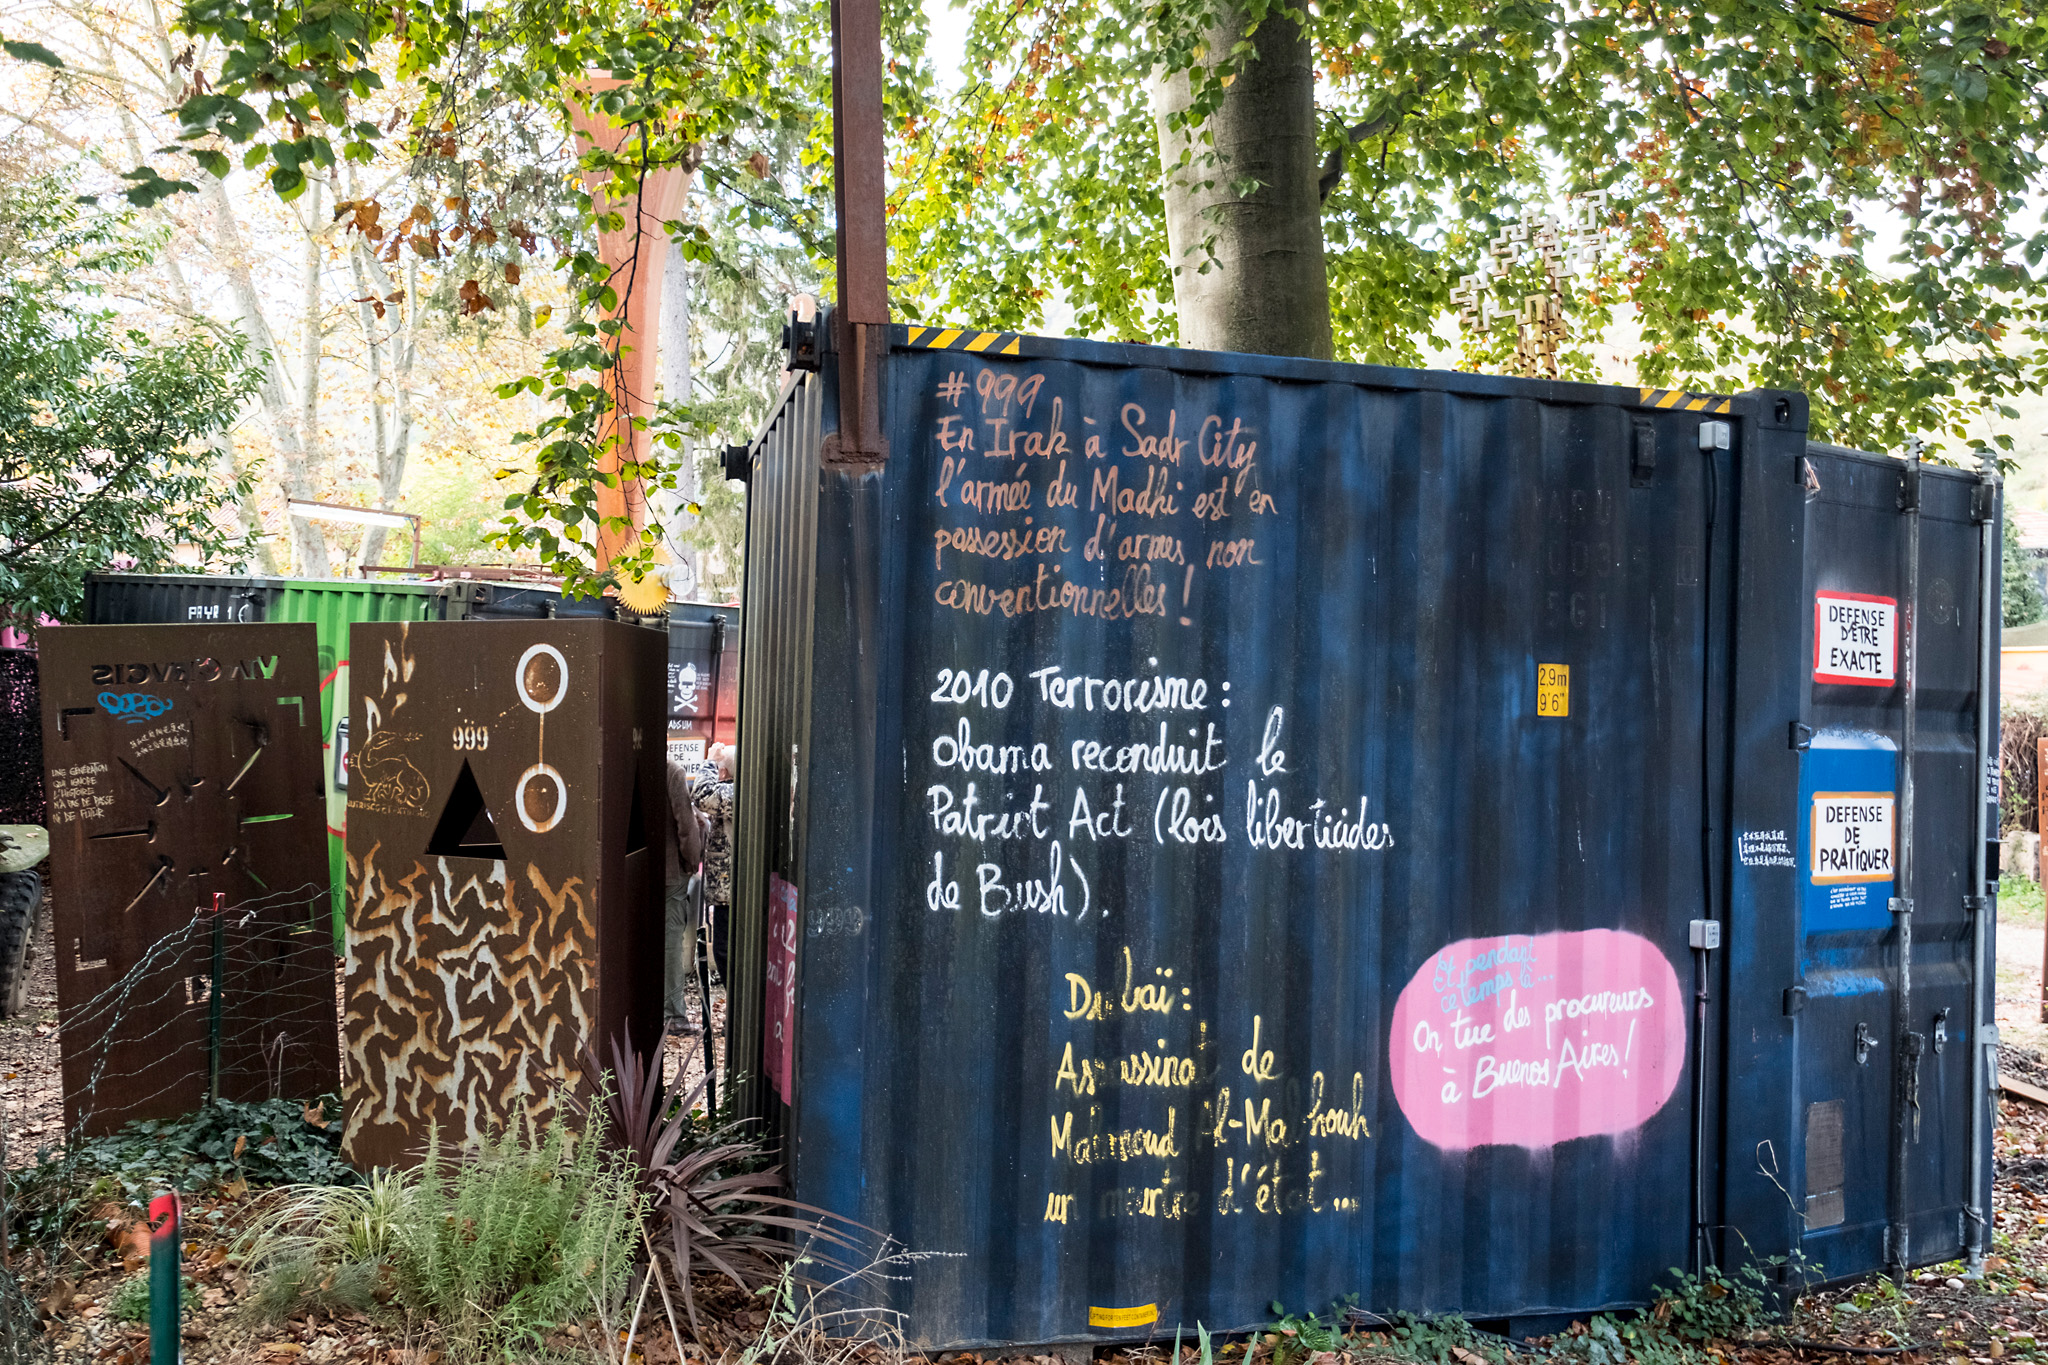 #999
En Irak à Sadr City
l'armée du Madhi est en
possession d'armes non
conventionnelles !
2010 Terrorisme :
Obama reconduit le
Patriot Act (lois liberticides
de Bush).
Dubaï :
Assassinat de
Mahmoud Al-Mabhouh
un meurtre d'état...
Et pendant
ce temps là...
On tue des procureurs
à Buenos Aires !
2.9m
9'6"
DEFENSE
D'ÊTRE
EXACTE
DEFENSE
DE
PRATIQUER
999
UNE GÉNÉRATION
QUI IGNORE
L'HISTOIRE
N'A PAS DE PASSÉ
NI DE FUTUR
DEFENSE
DE